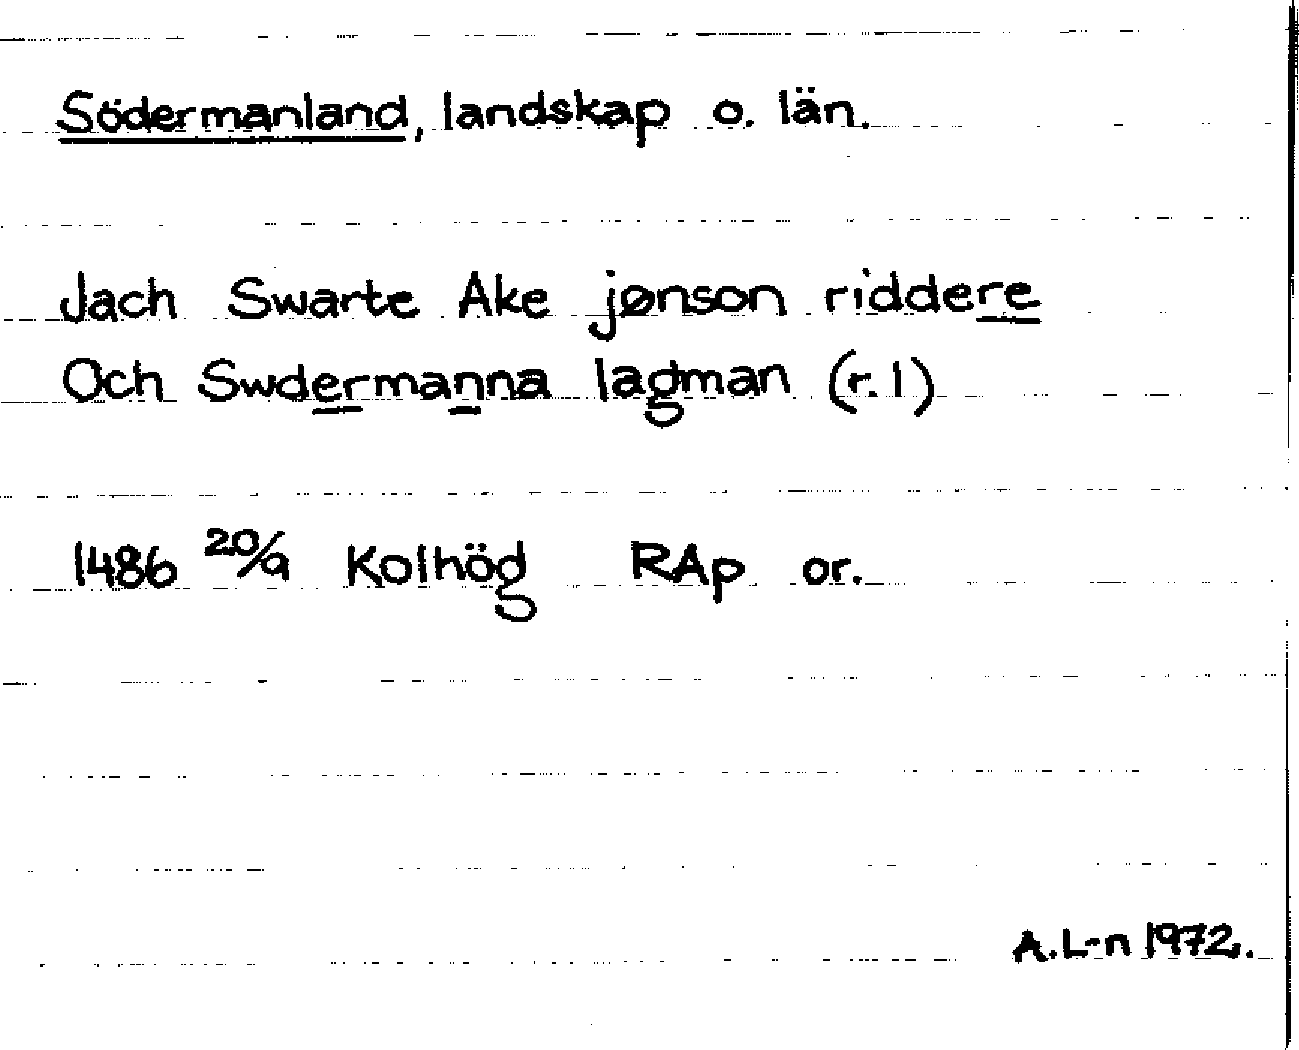 Södermanland, landskap o. län.
Jach Swarte Ake jønson riddere
Och Swdermanna lagman (r.1)
1486 20/9 Kolhög RAp or.
A.L-n 1972.